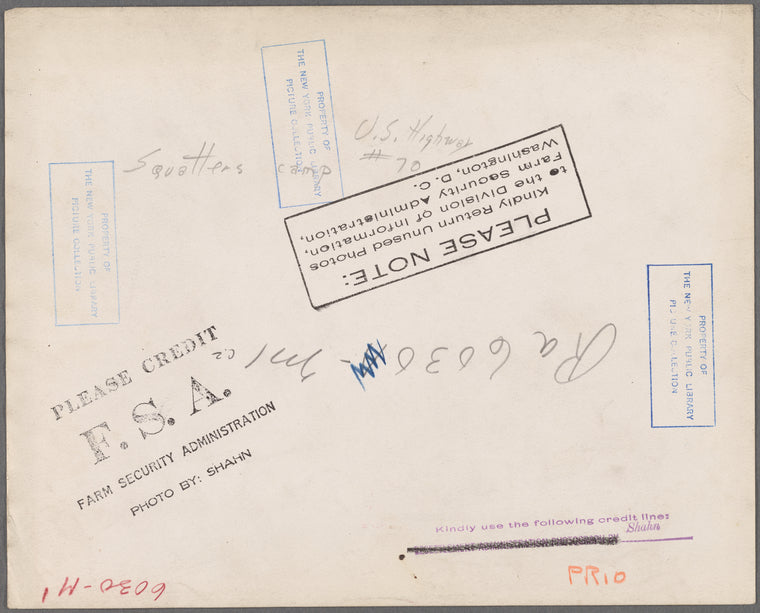 PROPERTY OF
THE NEW YORK PUBLIC LIBRARY
PICTURE COLLECTION
Squatters camp
U.S. Highway
# 70
PROPERTY OF
THE NEW YORK PUBLIC LIBRARY
PICTURE COLLECTION
PLEASE NOTE:
Kindly Return Unused Photos
to the Division of Information,
Farm Security Administration,
Washington, D. C.
PROPERTY OF
THE NEW YORK PUBLIC LIBRARY
PICTURE COLLECTION
Ra 6030
PLEASE CREDIT
F. S. A.
FARM SECURITY ADMINISTRATION
PHOTO BY: SHAHN
Kindly use the following credit line:
Shahn
PR10
6030-M1